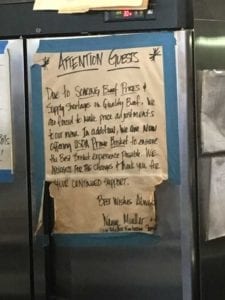 * ATTENTION GUESTS *
Due to SOARING Beef Prices &
Supply shortages in Quality Beef. We
are forced to make price adjustments
to our menu. In addition, we are now
offering USDA Prime Brisket to ensure
the Best Brisket experience Possible. We
for this change & thank you for
your continued support.
Best Wishes Always
Wayne Mueller